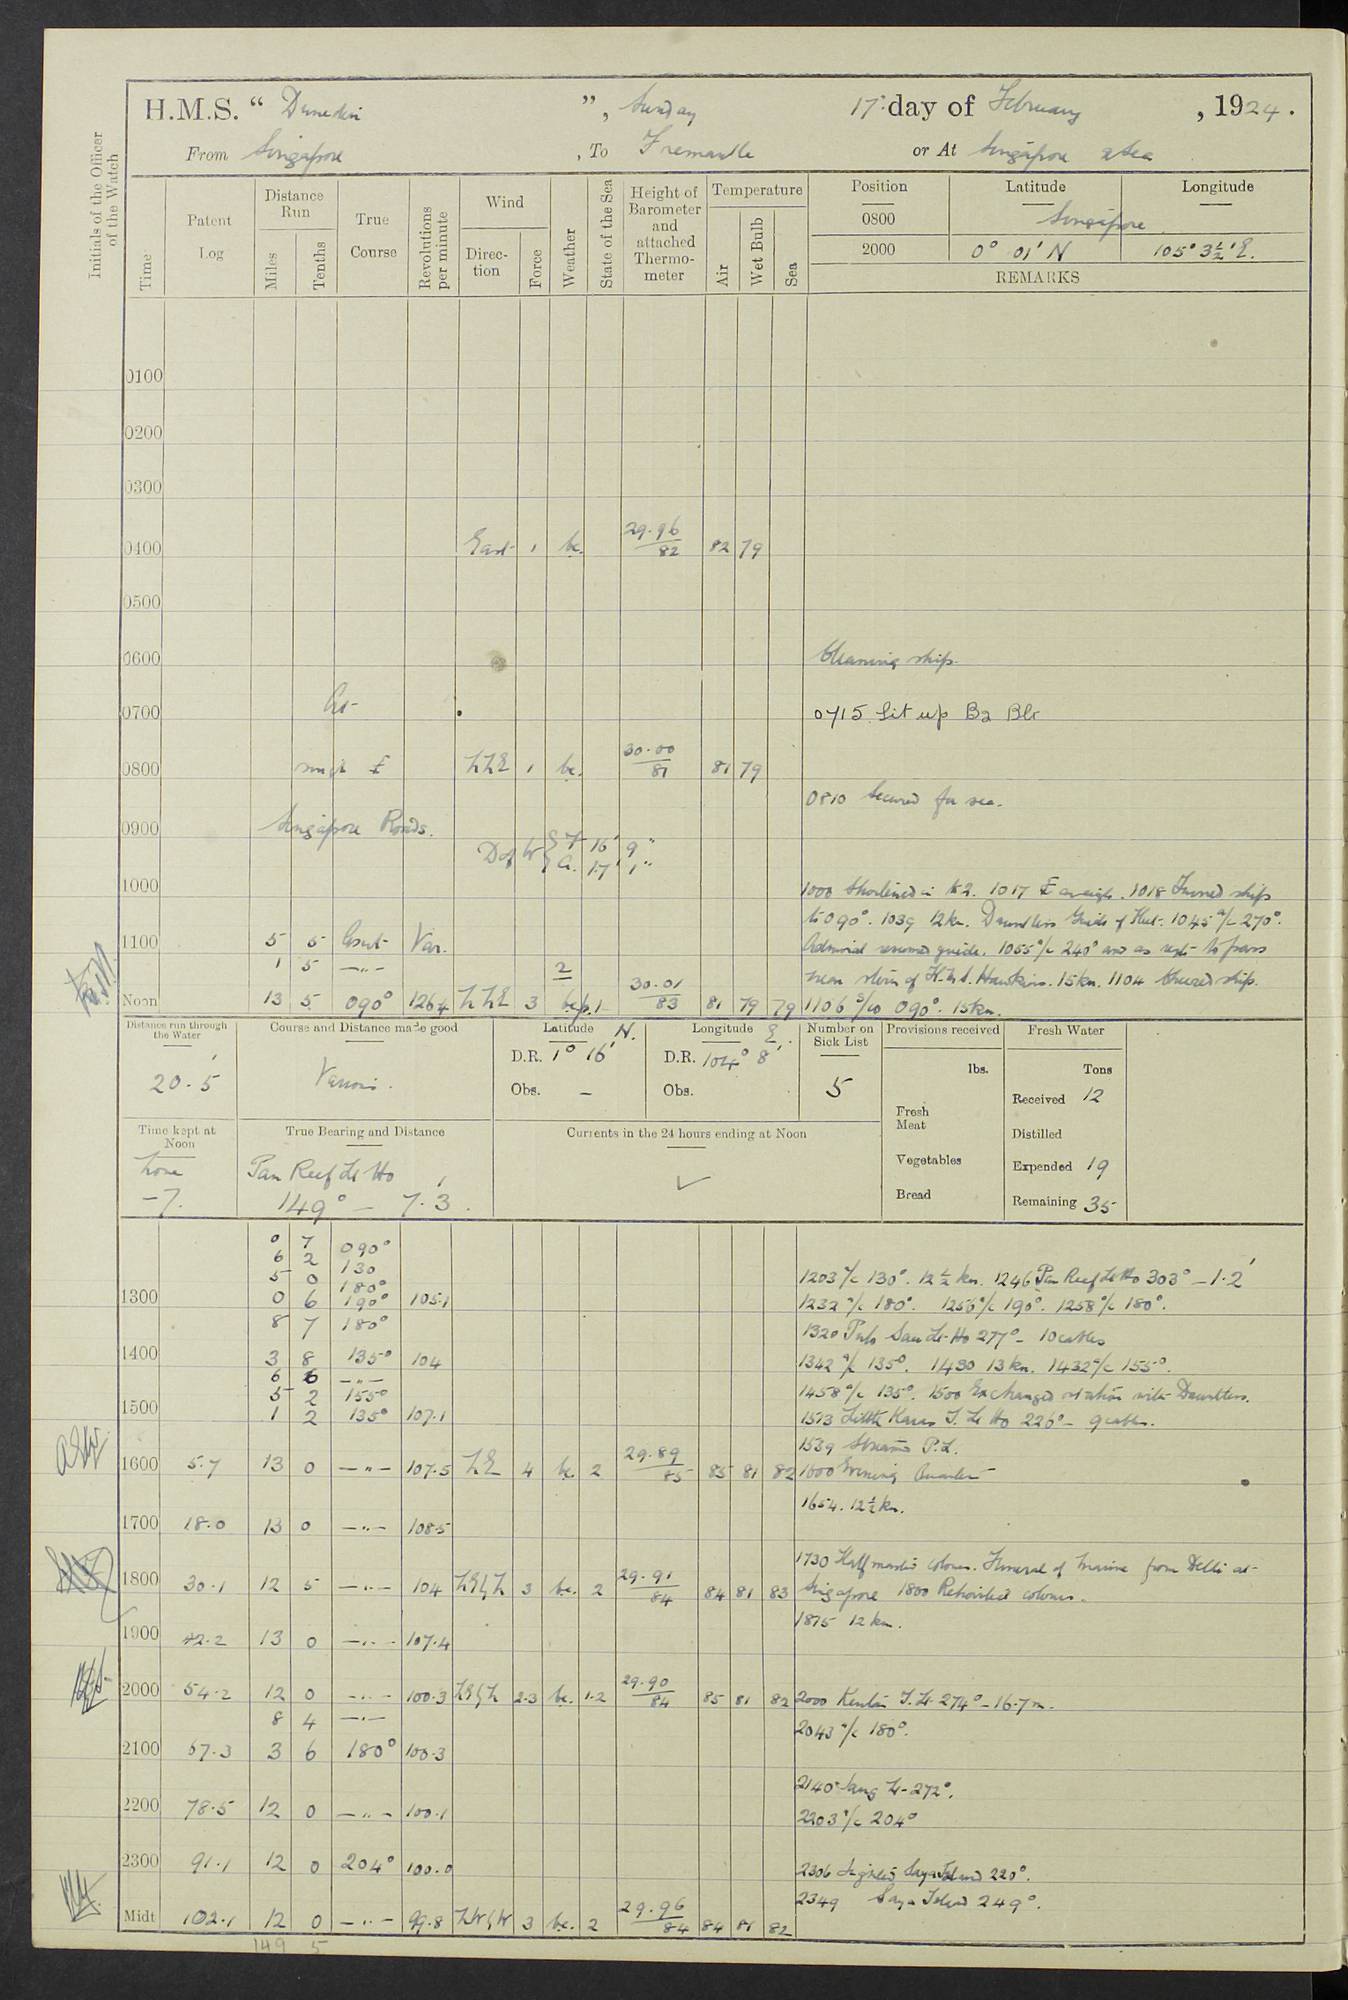 H.M.S. “ Dunedin ”, Sunday 17th day of February, 1924.
From Singapore, To Fremantle or At Singapore & Sea
Initials of the Officer of the Watch
Time
Patent Log
Distance Run
Miles
Tenths
True Course
Revolutions per minute
Wind
Direction
Force
Weather
State of the Sea
Height of Barometer and attached Thermometer
Temperature
Air
Wet Bulb
Sea
Position Latitude Longitude
0800 Singapore
2000 0° 01' N 105° 3½' E.
REMARKS
0100
0200
0300
0400 East 1 bc. 29.96 82 82 79
0500
0600 Cleaning ship.
At
0700 0715 Lit up B2 Blr
0800 single £ NNE 1 bc. 30.00 81 81 79
0810 Secured for sea.
0900 Singapore Roads.
D of W F 16' 9"
A. 17' 1"
1000 1000 Shortened in to 2. 1017 £ aweigh. 1018 Turned ship
to 090°. 1039 12 kn. Dauntless Guide of Fleet. 1045 a/c 270°.
1100 5 5 Asreqt Var. Admiral resumed guide. 1055 a/c 240° and as reqt to pass
1 5 —"— 2 near stern of H.M.S. Hawkins. 15 kn. 1104 Cheered ship.
Noon 13 5 090° 126.4 NNE 3 bc.p. 1 30.01 83 81 79 79 1106 S/co 090°. 15 kn.
Distance run through the Water
20.5
Course and Distance made good
Various.
Latitude N.
D.R. 1° 16'
Obs. —
Longitude E.
D.R. 104° 8'
Obs.
Number on Sick List
5
Provisions received
lbs.
Fresh Meat
Vegetables
Bread
Fresh Water
Tons
Received 12
Distilled
Expended 19
Remaining 35
Time kept at Noon
Zone
-7.
True Bearing and Distance
Pan Reef Lt Ho
149° — 7.3'.
Currents in the 24 hours ending at Noon
✓
0 7 090°
6 2 130
5 0 180° 1203 a/c 130°. 12½ kn. 1246 Pan Reef Lt Ho 303° — 1.2'
1300 0 6 190° 105.1 1232 a/c 180°. 1256 a/c 190°. 1258 a/c 180°.
8 7 180° 1320 Pulo Sau Lt Ho 277° - 10 cables
1400 3 8 135° 104 1342 a/c 135°. 1430 13 kn. 1432 a/c 155°.
6 6 —"—
5 2 155° 1458 a/c 135°. 1500 Exchanged station with Dauntless.
1500 1 2 135° 107.1 1513 Little Karas I. Lt Ho 226° - 9 cables.
1539 Streamed P.L.
1600 5.7 13 0 —"— 107.5 NE 4 bc. 2 29.89 85 85 81 82 1600 Evening Quarters
1654. 12½ kn.
1700 18.0 13 0 —"— 108.5
1730 Half masted colours. Funeral of marine from Delhi at
1800 30.1 12 5 —"— 104 NExN 3 bc. 2 29.91 84 84 81 83 Singapore 1800 Rehoisted colours.
1815 12 kn.
1900 42.2 13 0 —"— 107.4
2000 54.2 12 0 —"— 100.3 NExN 2.3 bc. 1.2 29.90 84 85 81 82 2000 Kentar I. Lt. 274° - 16.7 m.
8 4 —"— 2043 a/c 180°.
2100 67.3 3 6 180° 100.3
2140 Lt - 272°.
2200 78.5 12 0 —"— 100.1 2203 a/c 204°
2300 91.1 12 0 204° 100.0 2306 Sighted Saya Island 220°.
2349 Saya Island 249°.
Midt 102.1 12 0 —"— 99.8 NWxW 3 bc. 2 29.96 84 84 81 82
149 5